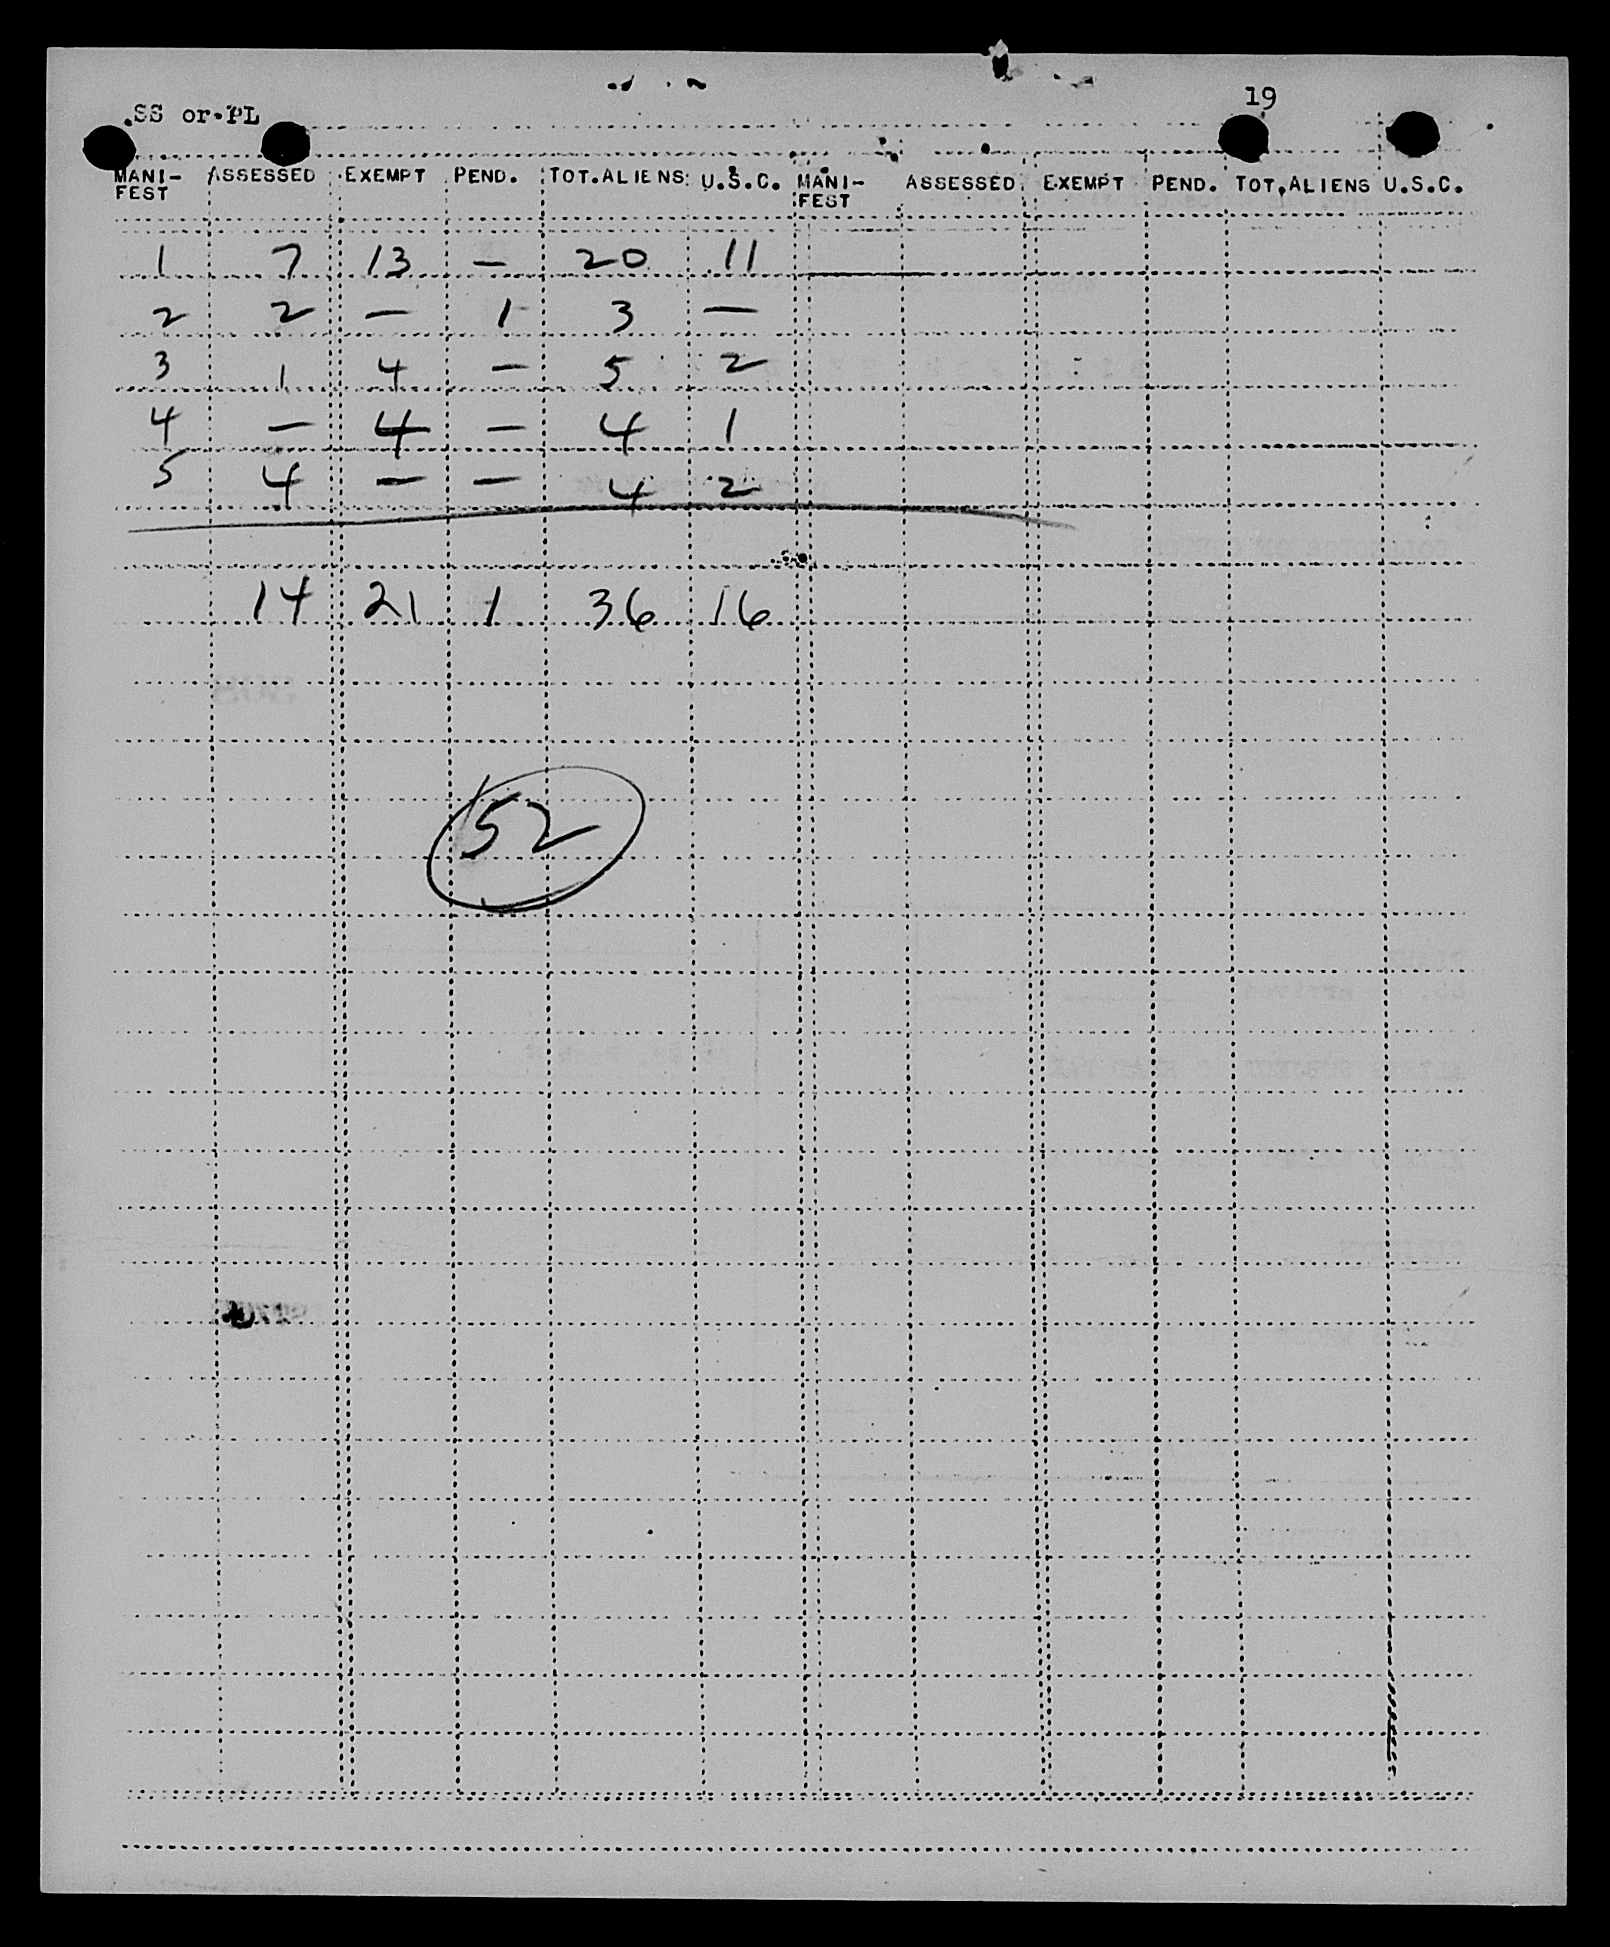 19
SS or PL
MANI-FEST ASSESSED EXEMPT PEND. TOT.ALIENS U.S.C. MANI-FEST ASSESSED EXEMPT PEND. TOT.ALIENS U.S.C.
1 7 13 — 20 11
2 2 — 1 3 —
3 1 4 — 5 2
4 — 4 — 4 1
5 4 — — 4 2
14 21 1 36 16
52